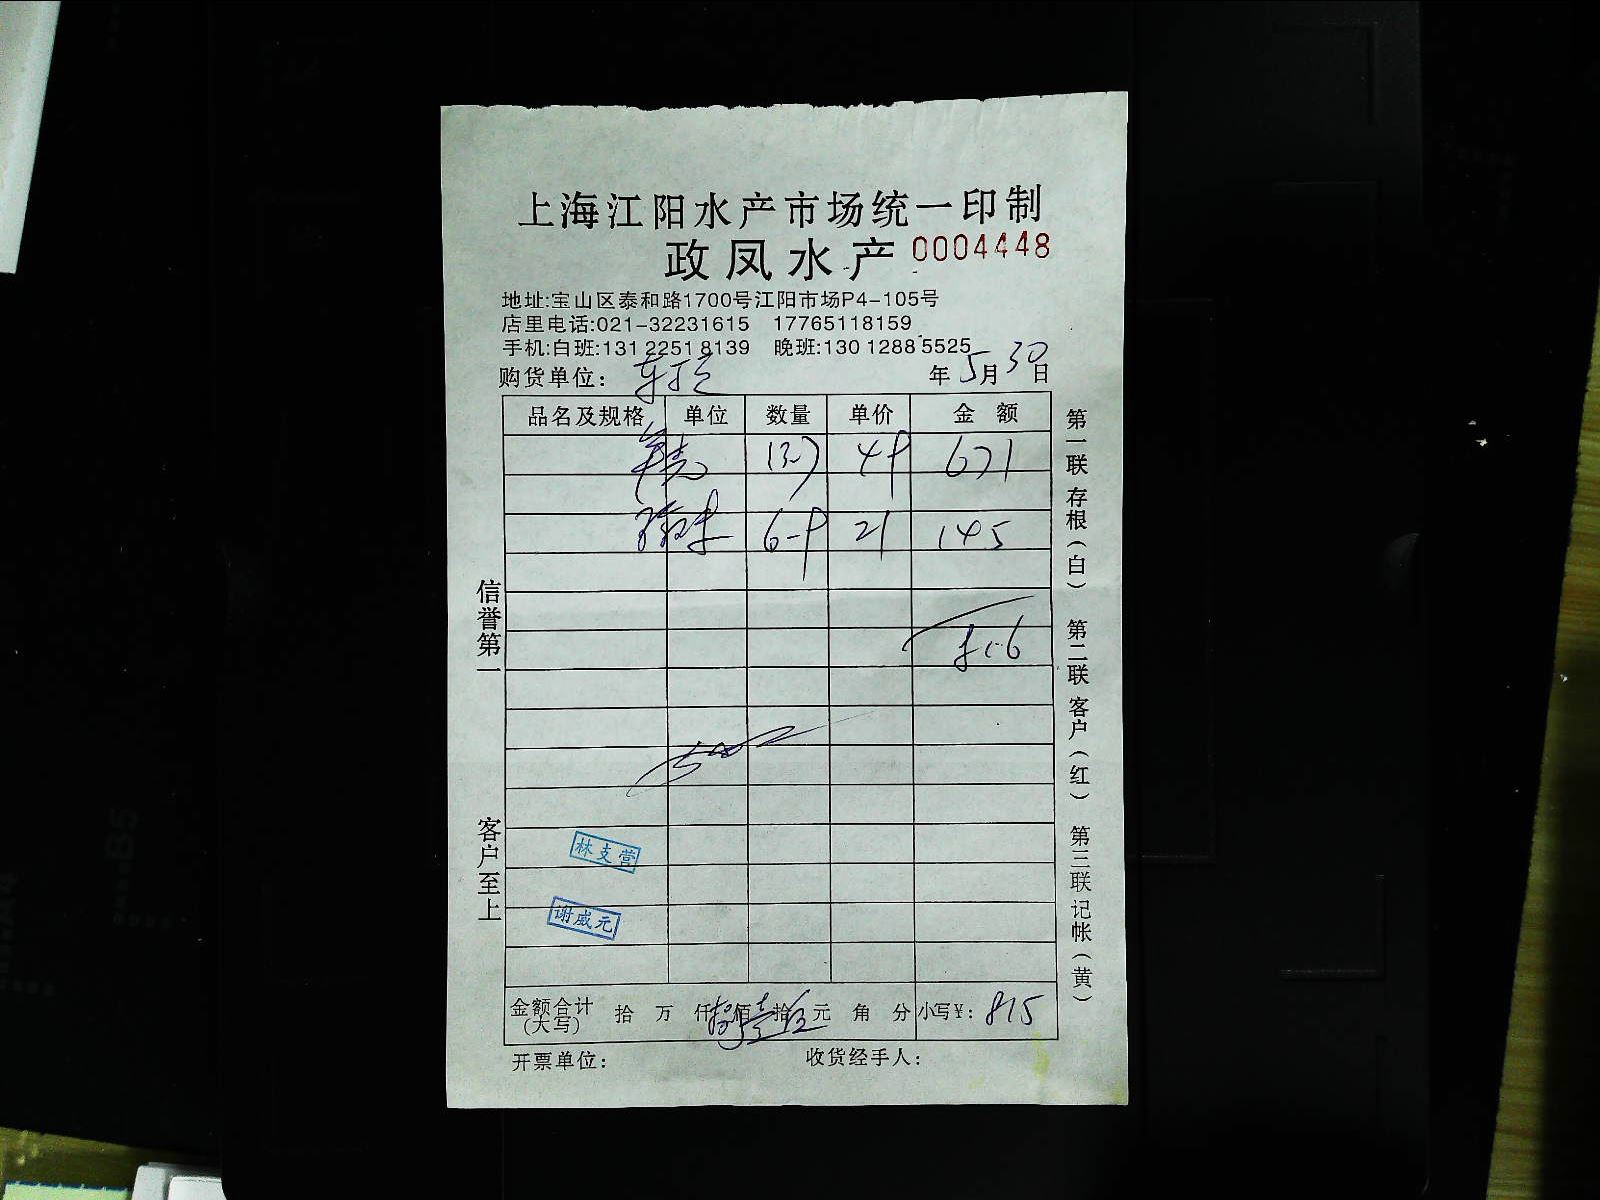 上海江阳水产市场统一印制
政凤水产 0004448
地址:宝山区泰和路1700号江阳市场P4-105号
店里电话:021-32231615 17765118159
手机:白班:131 2251 8139 晚班:130 1288 5525
购货单位: 年 5月 30日
品名及规格 单位 数量 单价 金 额
671
21 145
林支营
谢威元
金额合计(大写) 拾 万 仟 佰 拾 元 角 分 小写¥: 815
开票单位: 收货经手人:
信誉第一
客户至上
第一联 存根(白)
第二联 客户(红)
第三联 记帐(黄)